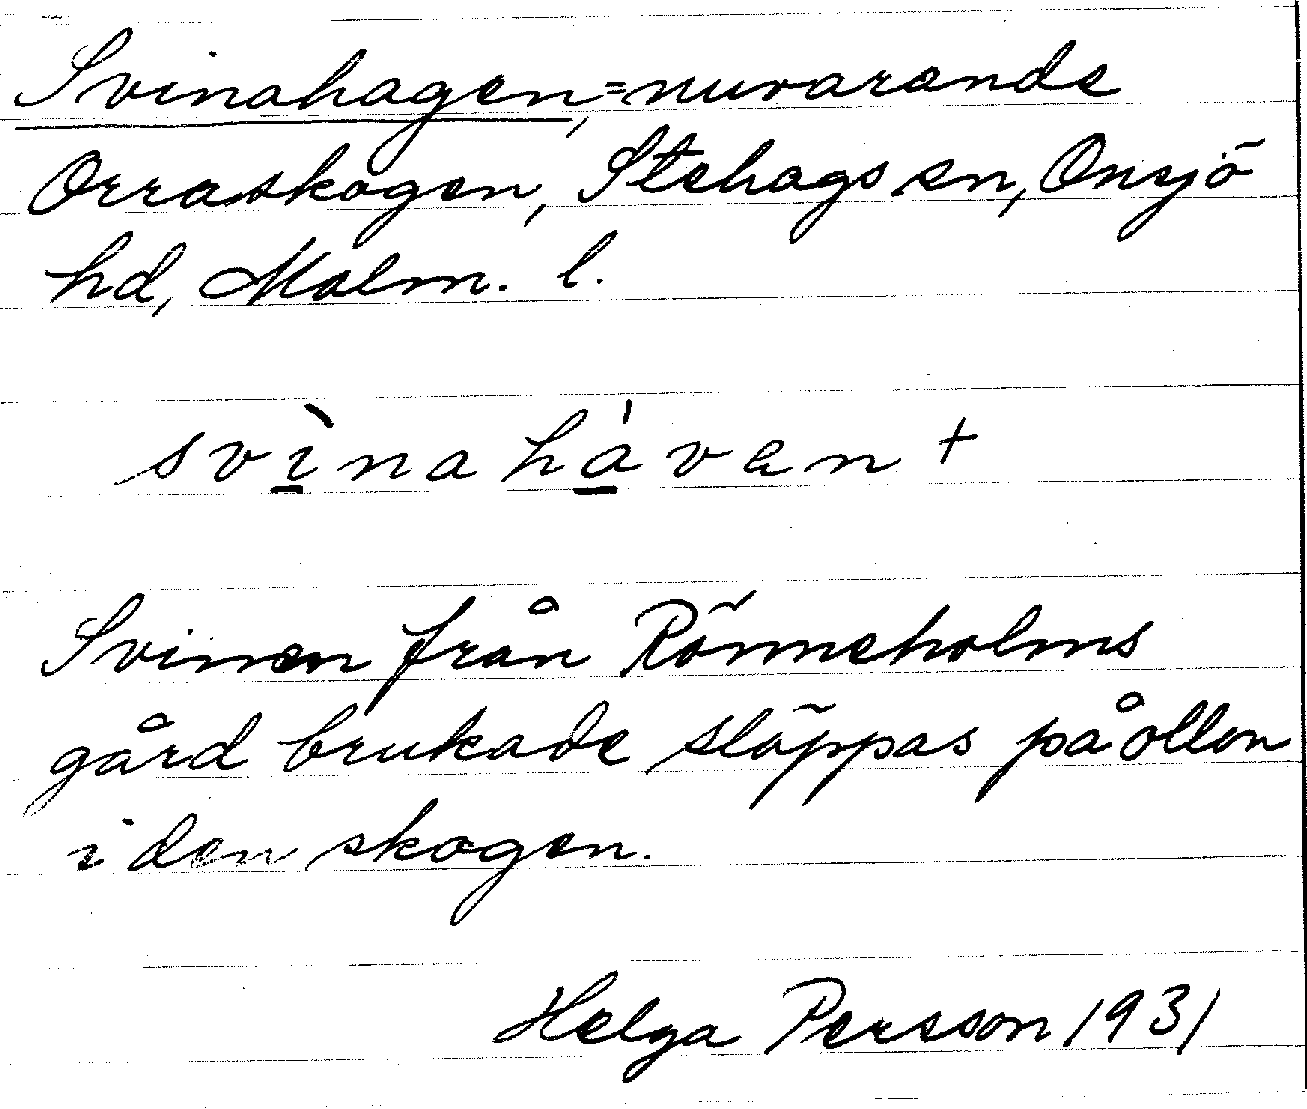 Svinahagen, = nuvarande
Orraskogen, Stehags sn, Onsjö
hd, Malm. l.
svìnahávan +
Svinen från Rönneholms
gård brukade släppas på ollon
i den skogen.
Helga Persson 1931